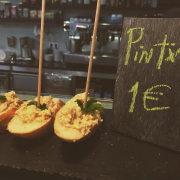 Pintx
1€